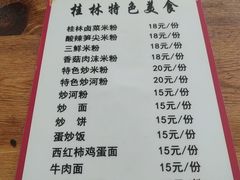 桂林特色美食
桂林卤菜米粉 18元/份
酸辣笋尖米粉 18元/份
三鲜米粉 18元/份
香菇肉沫米粉 18元/份
特色炒米粉 20元/份
特色炒河粉 20元/份
炒河粉 15元/份
炒面 15元/份
炒饼 15元/份
蛋炒饭 15元/份
西红柿鸡蛋面 15元/份
牛肉面 15元/份